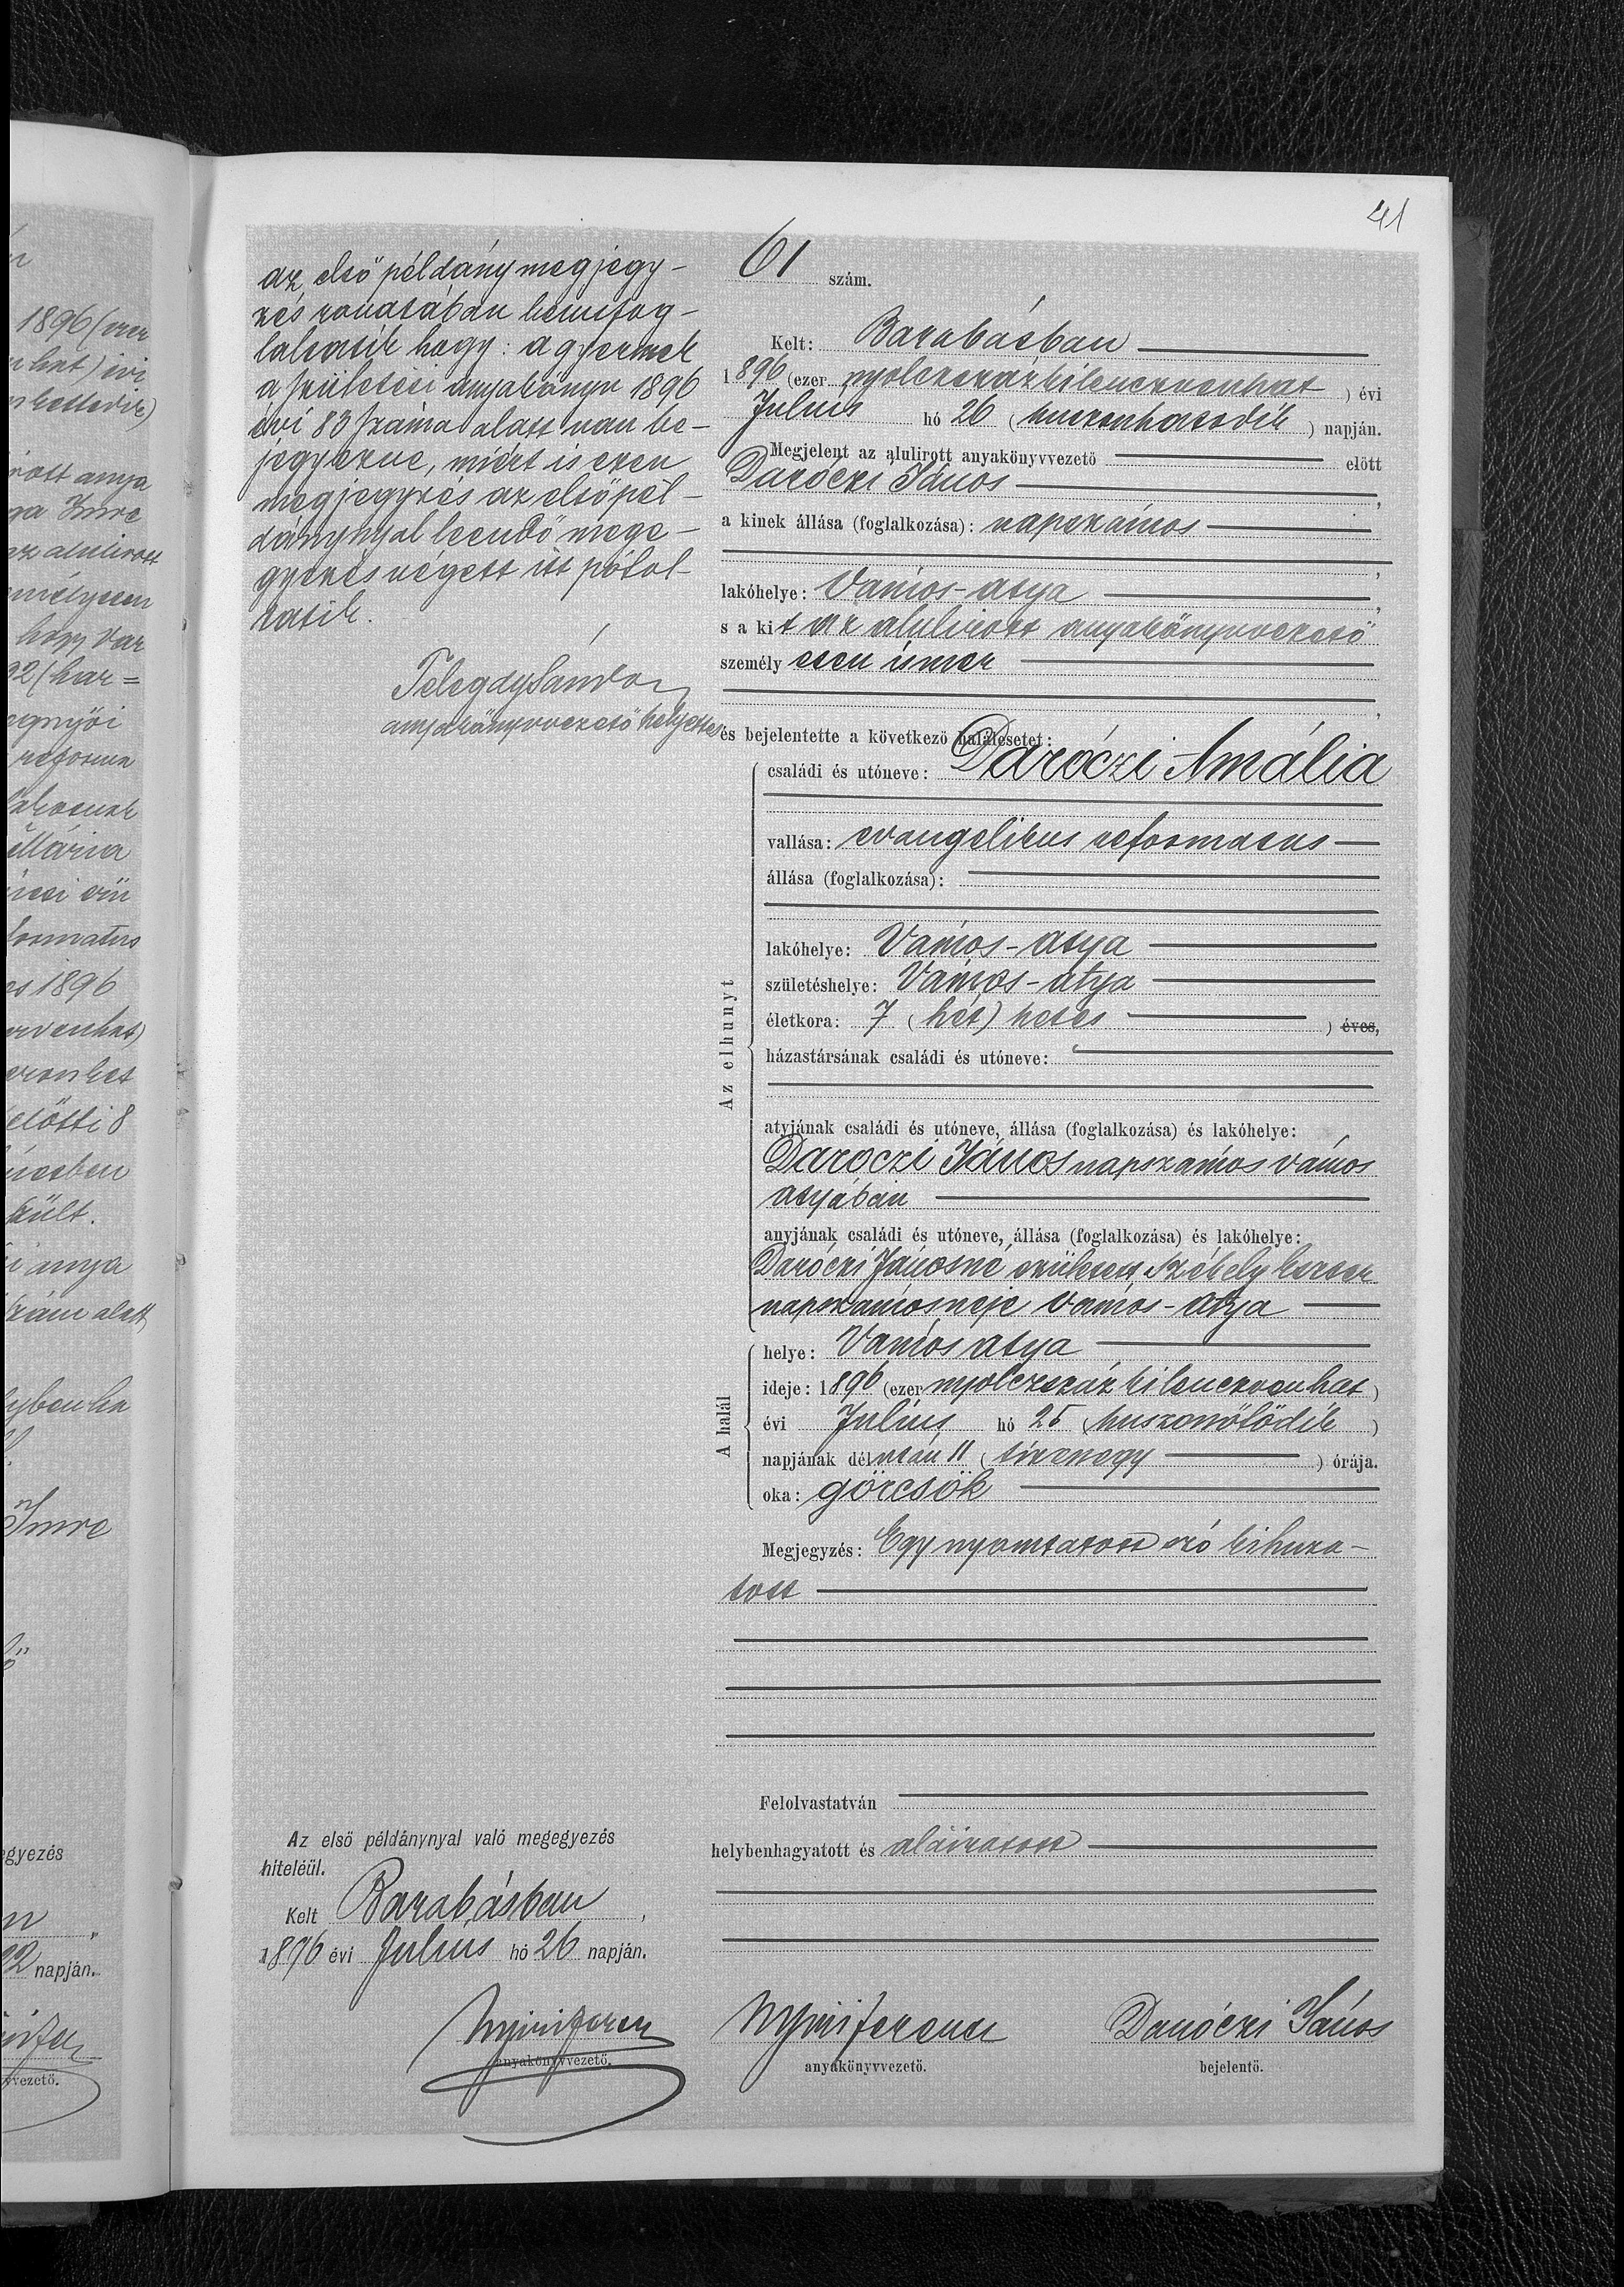 41
az első példány megjegy-
zés rovatában bennfog-
laltatik hogy: a gyermek
a születési anyakönyv 1896
évi 83 száma alatt van be-
jegyezve, miért is ezen
megjegyzés az első pél-
dánynyal leendő mege-
gyezés végett itt pótol-
tatik.
Telegdy Sándor
anyakönyvvezető helyettes
61 szám.
Kelt: Barabásban
1896 (ezer nyolczszázkilenczvenhat) évi
Julius hó 26 (huszonhatodik) napján.
Megjelent az alulirott anyakönyvvezető előtt
Daróczi János,
a kinek állása (foglalkozása): napszámos
lakóhelye: Vámos-atya,
s a kit az alulirott anyakönyvvezető
személyesen ismer
és bejelentette a következő halálesetet:
Az elhunyt
családi és utóneve: Daróczi Amália
vallása: evangelikus reformatus
állása (foglalkozása):
lakóhelye: Vámos-atya
születéshelye: Vámos-atya
életkora: 7 (hét) hetes ) éves,
házastársának családi és utóneve:
atyjának családi és utóneve, állása (foglalkozása) és lakóhelye:
Daroczi János napszámos vámos
atyában
anyjának családi és utóneve, állása (foglalkozása) és lakóhelye:
Daróczi Jánosné született Székely Eszter
napszámos neje Vámos-atya
A halál
helye: Vámos atya
ideje: 1896 (ezer nyolczszáz kilenczvenhat)
évi Julius hó 25 (huszonötödik)
napjának délután 11 (tizenegy) órája.
oka: görcsök
Megjegyzés: Egy nyomtatott szó kihuza-
tott
Felolvastatván
helybenhagyatott és aláiratott
Az első példánynyal való megegyezés
hiteléül.
Kelt Barabásban,
1896 évi Julius hó 26 napján.
anyakönyvvezető.
anyakönyvvezető.
Daróczi János
bejelentő.